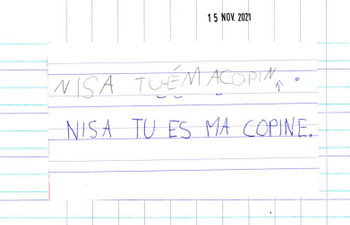 15 NOV. 2021
NISA TU-ÉMACOPIN.
NISA TU ES MA COPINE.